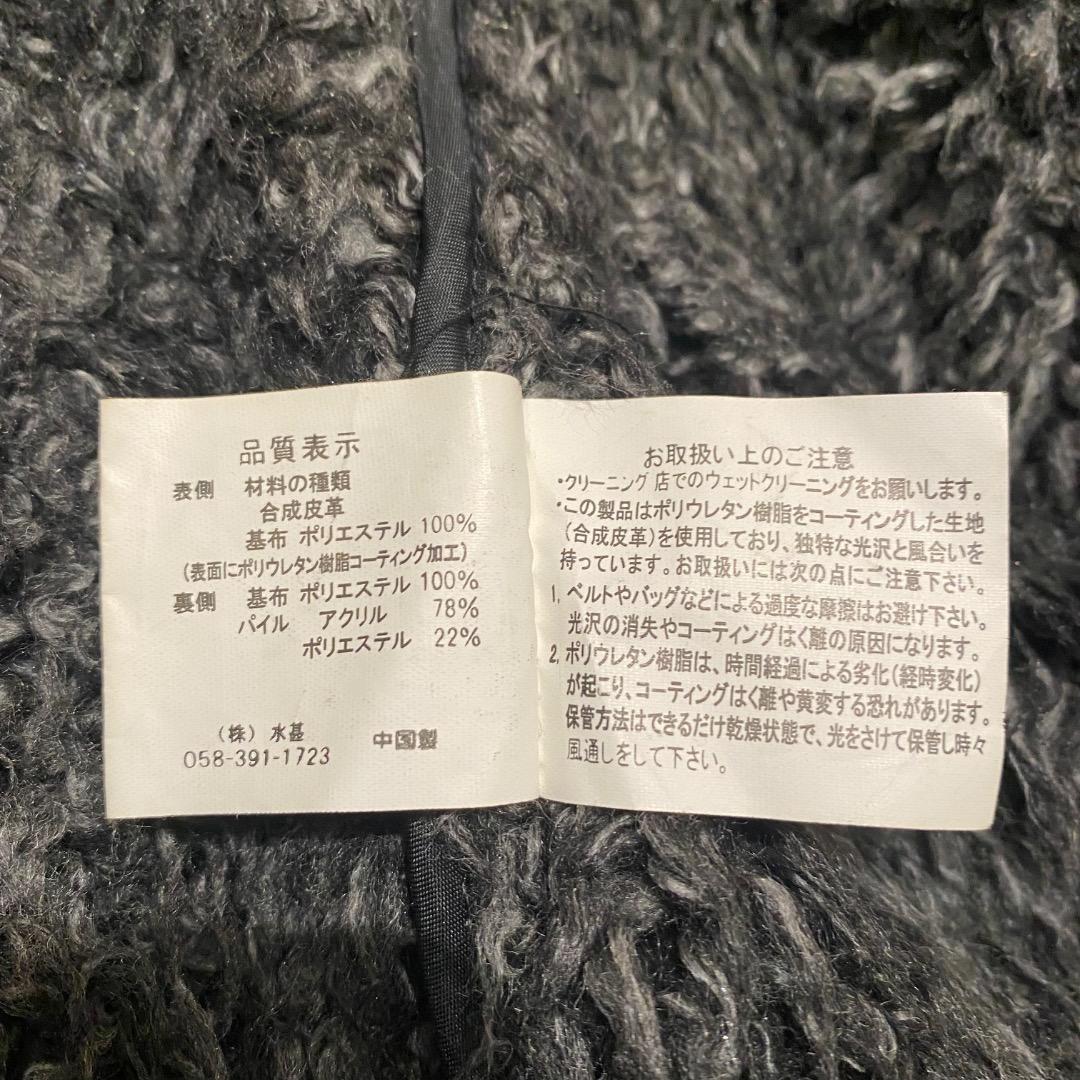 品質表示
表側 材料の種類
合成皮革
基布 ポリエステル 100%
(表面にポリウレタン樹脂コーティング加工)
裏側 基布 ポリエステル 100%
パイル アクリル 78%
ポリエステル 22%
(株) 水甚 中国製
058-391-1723
お取扱い上のご注意
・クリーニング店でのウェットクリーニングをお願いします。
・この製品はポリウレタン樹脂をコーティングした生地
(合成皮革)を使用しており、独特な光沢と風合いを
持っています。お取扱いには次の点にご注意下さい。
1, ベルトやバッグなどによる過度な摩擦はお避け下さい。
光沢の消失やコーティングはく離の原因になります。
2, ポリウレタン樹脂は、時間経過による劣化(経時変化)
が起こり、コーティングはく離や黄変する恐れがあります。
保管方法はできるだけ乾燥状態で、光をさけて保管し時々
風通しをして下さい。